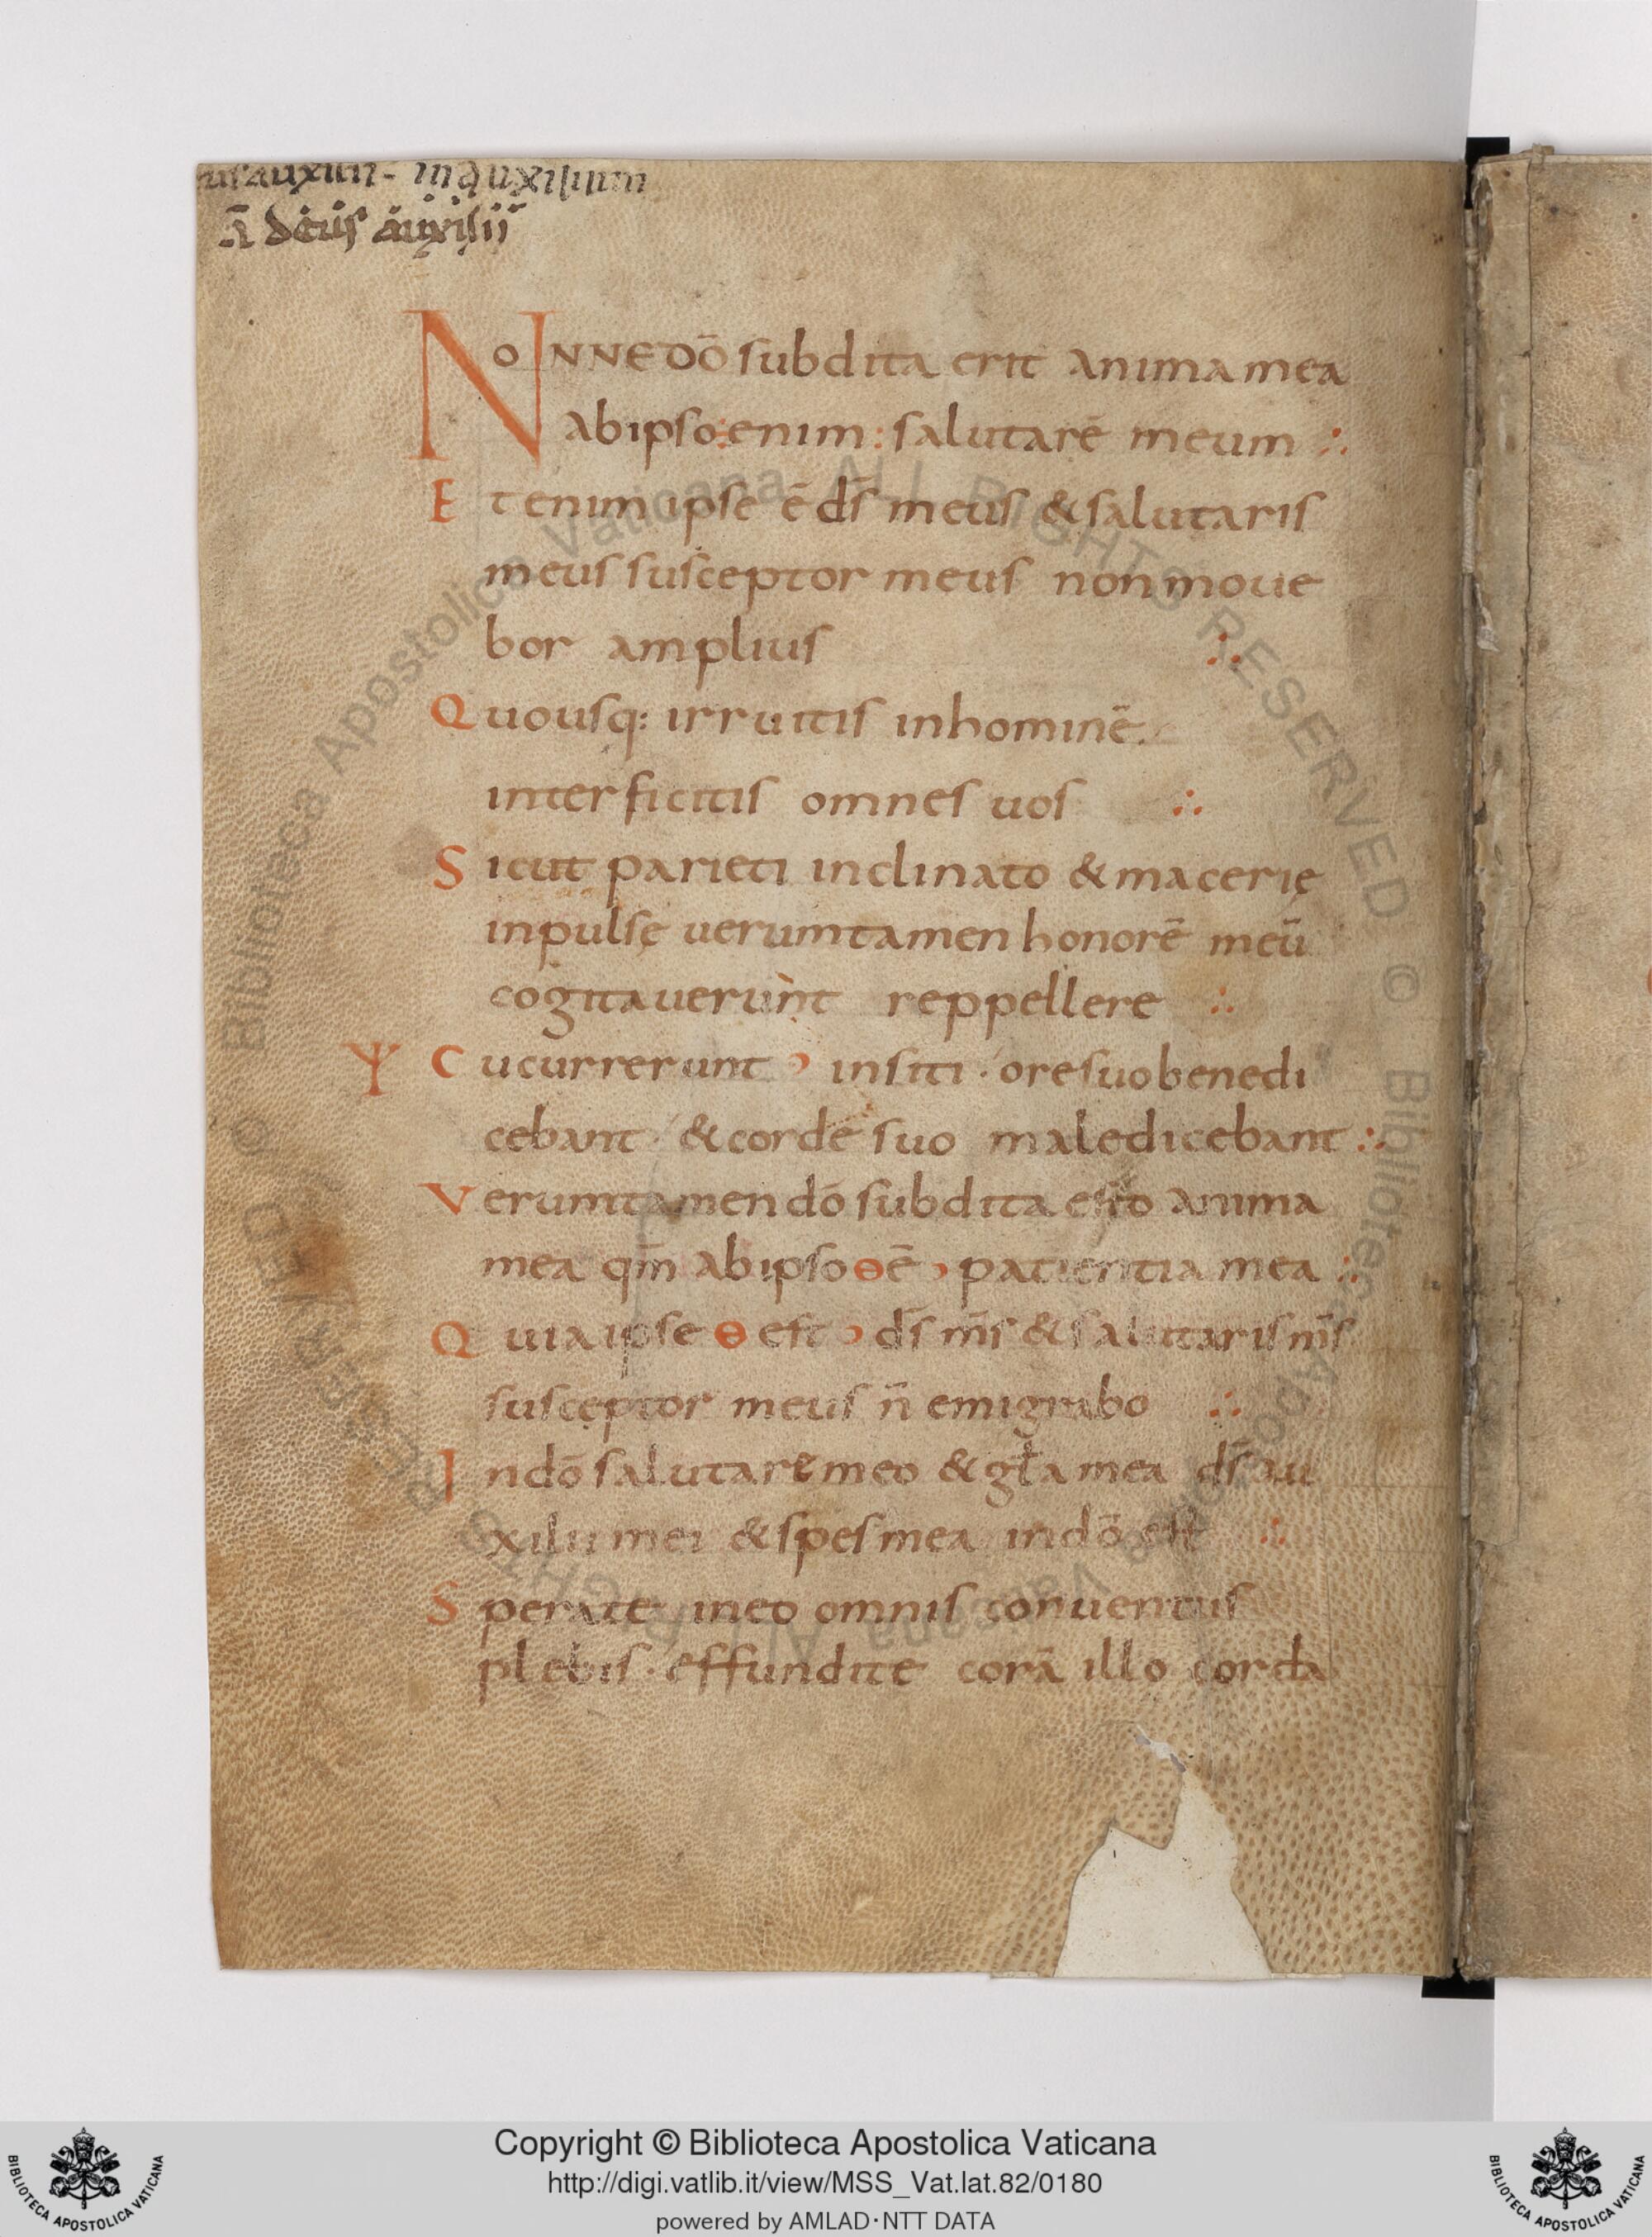 auxilii - in auxilium
deus auxilii
NoNNE DO̅ subdita erit anima mea
ab ipso : enim : salutarē meum ∴
Etenim ipse ē ds̄ meus & salutaris
meus susceptor meus non moue
bor amplius ∴
Quousq: irruitis in hominē
interficitis omnes uos ∴
Sicut parieti inclinato & macerię
inpulsę uerumtamen honorē meū
cogitauerunt reppellere ∴
Cucurrerunt insiti · ore suo benedi
cebant · & corde suo maledicebant ∴
Verumtamen dō subdita esto anima
mea qm̄ ab ipso ɵ ē patientia mea ∴
Quia ipse ɵ est ds̄ ms̄ & salutaris ms̄
susceptor meus n̄ emigrabo ∴
In dō salutare meo & gła mea ds̄ au
xilii mei & spes mea in dō est ∴
Sperate in eo omnis conuentus
plebis · effundite corā illo corda
Copyright © Biblioteca Apostolica Vaticana
http://digi.vatlib.it/view/MSS_Vat.lat.82/0180
powered by AMLAD·NTT DATA
BIBLIOTECA APOSTOLICA VATICANA
BIBLIOTECA APOSTOLICA VATICANA